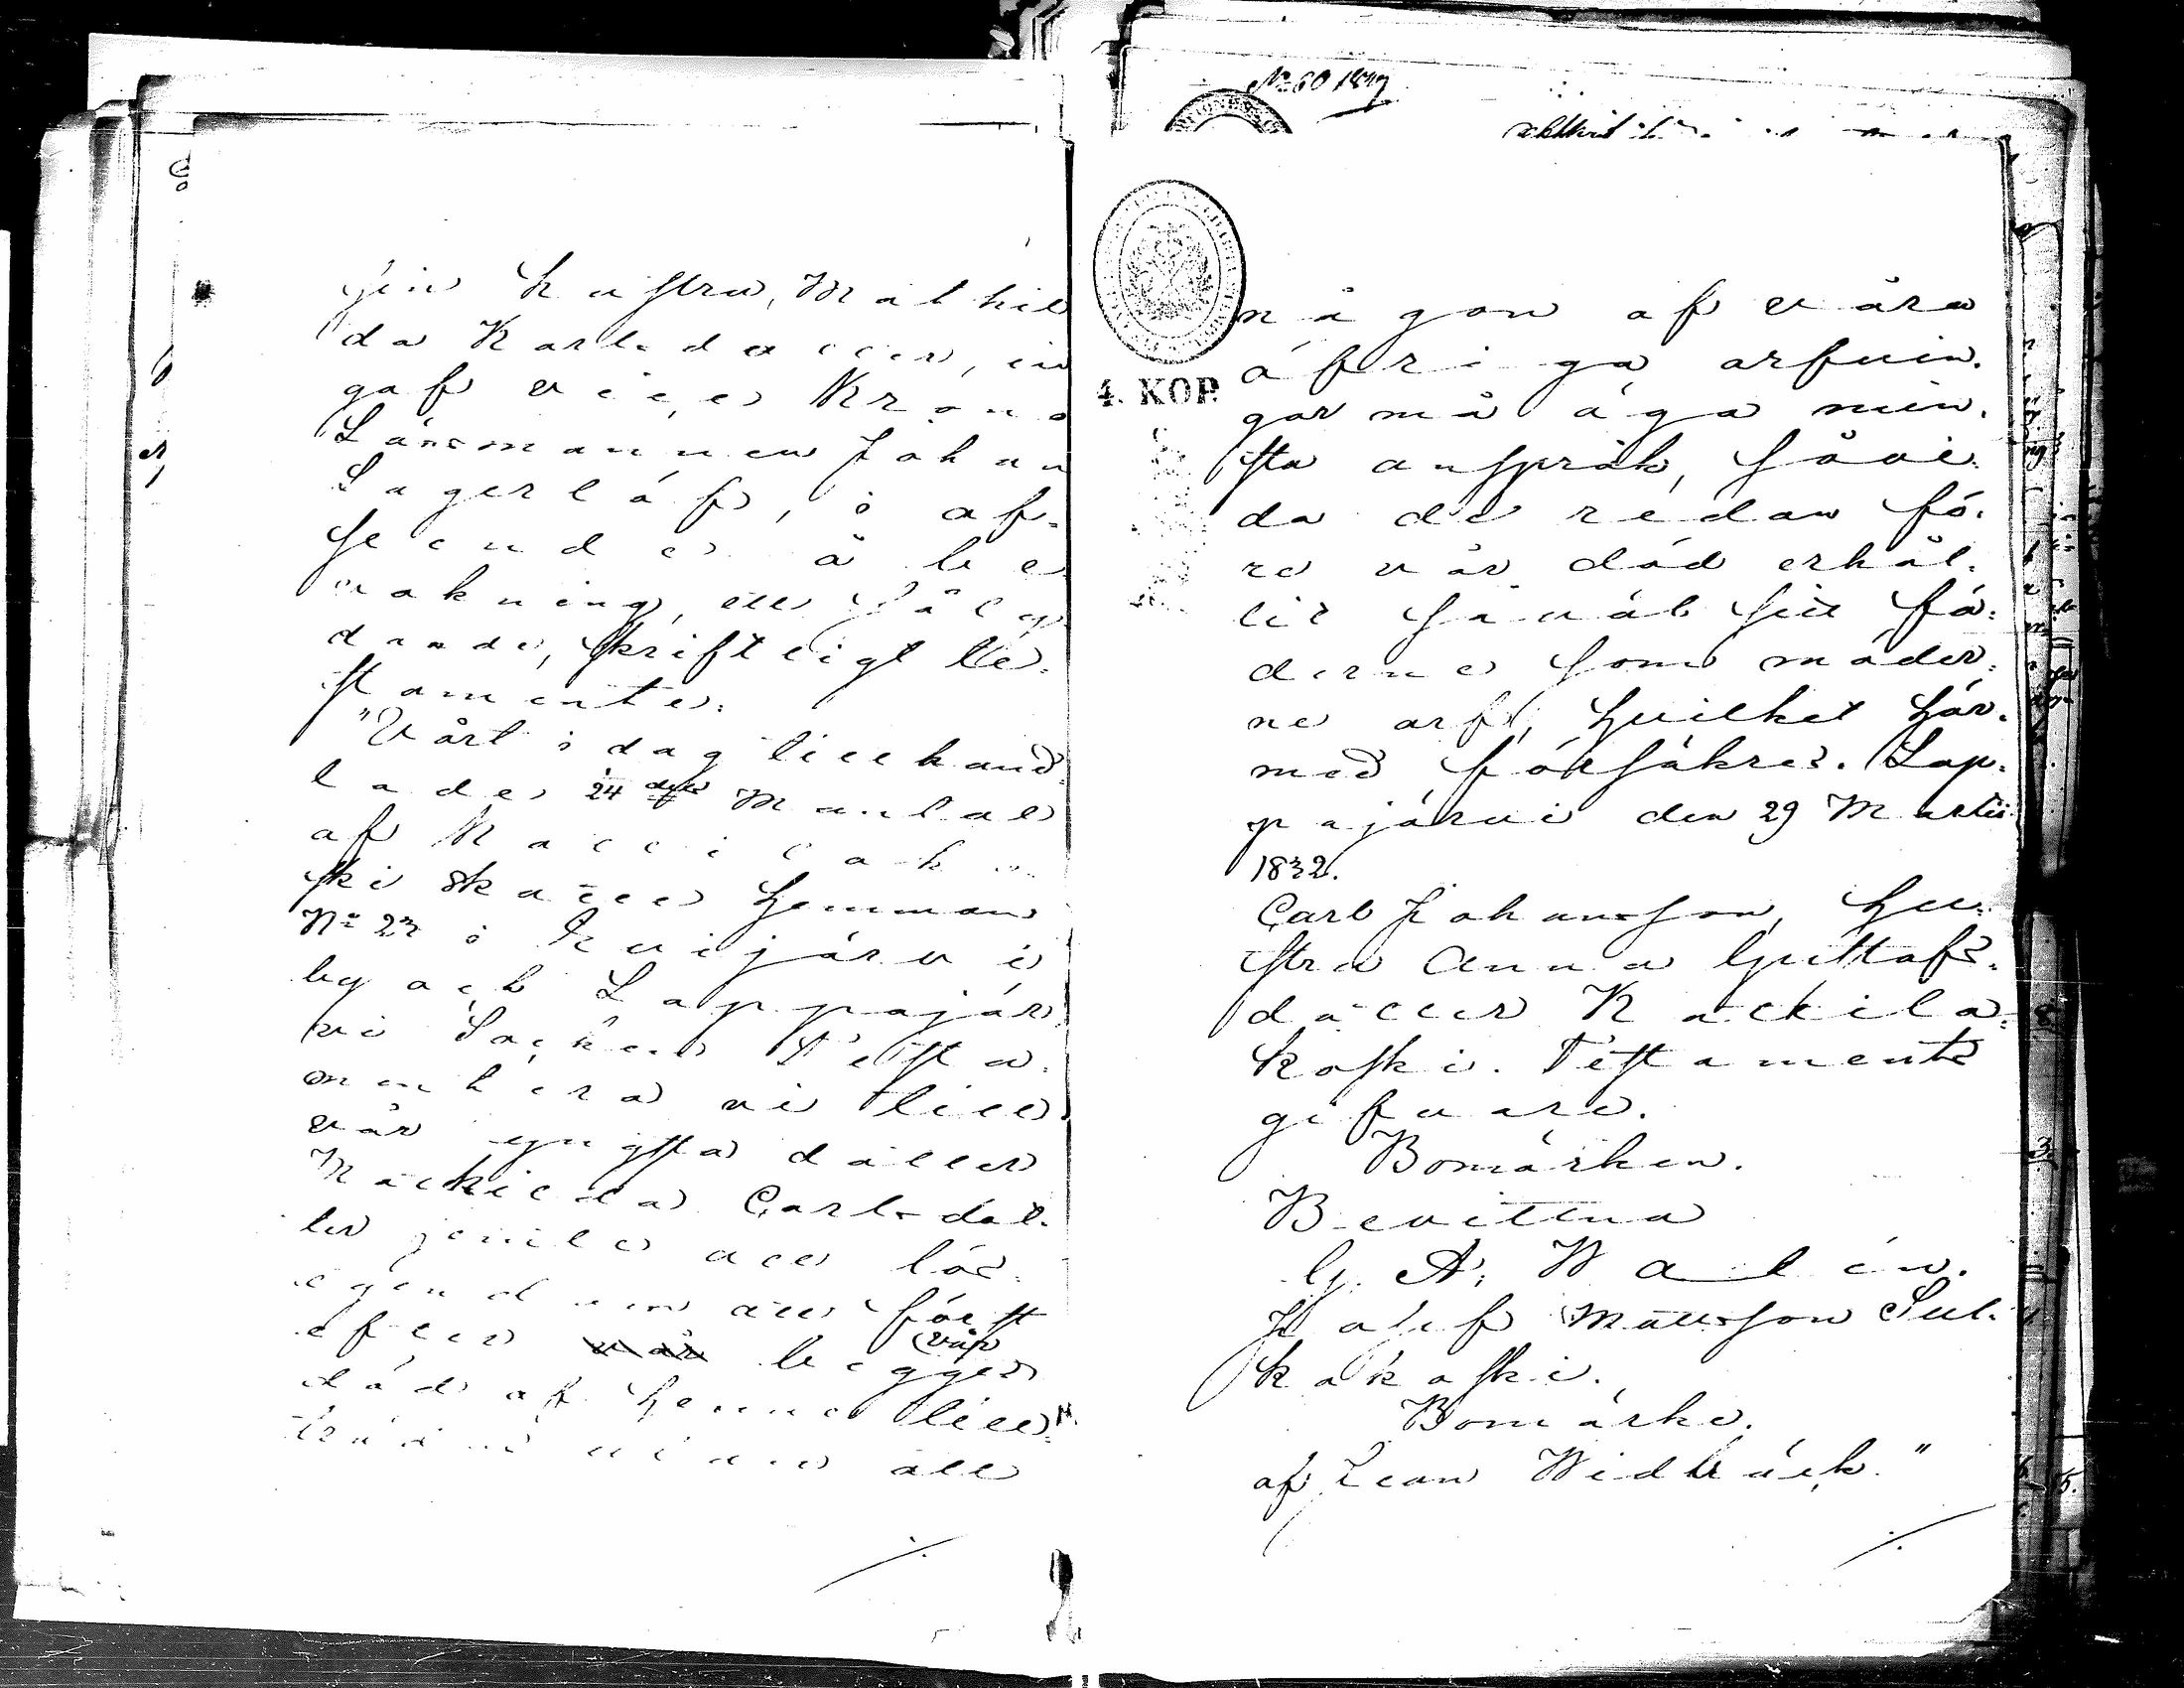 sin hustru, Mathil
da Karlsdotter, in
gaf vice Krono
Länsmannen Johan
Lagerlöf, i af-
seende å be
vakning, ett så ly
dande, skriftligt Te-
stamente:
"Vårt i dag tillhand-
lade 24 dels Mantal
af
ski skatte hemman
No 23 i Kuijärvi
by och Lappajär
vi Socken Testa-
mentera vi till
vår yngsta dotter
Mathilda Carlsdot-
ter jemte all lös-
egendom att först
efter vår begges
död af henne till-
trädas utan att
No 60 1847
4. KOP.
någon af våra
öfriga arfvin-
gar må äga min-
sta anspråk, såvi-
da de redan fö-
re vår död erhål-
lit såväl sitt fä-
derne som möder-
ne arf, hvilket här-
med försäkras. Lap-
pajärvi den 29 Martii
1832.
Carl Johansson, Hu-
stru Anna Gustafs-
dotter Kackila-
koski. Testaments
gifvare.
Bomärken.
Bevittna
G. A. Walén.
Jakob Mattsson Sul-
kakoski.
Bomärke.
af Lean Widbäck."